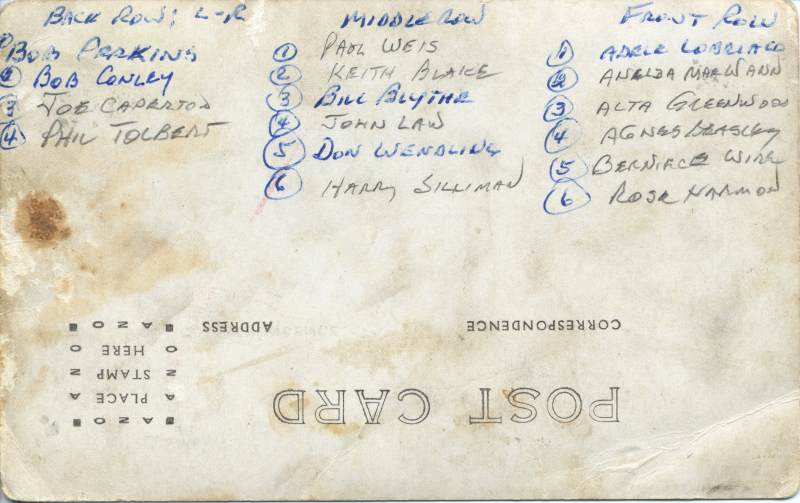 BACK ROW; L-R
BOB PERKINS
2 BOB CONLEY
3 JOE CAPERTON
4 PHIL TOLBERT
MIDDLE ROW
1 PAUL WEIS
2 KEITH BLAKE
3 BILL BLYTHE
4 JOHN LAW
5 DON WENDLING
6 HARRY SILLIMAN
FRONT ROW
1 ADELE
2 MAE WANN
3 ALTA GREENWOOD
4 AGNES BEASLEY
5 BERNIECE
6 ROSE HARMON
CORRESPONDENCE
ADDRESS
POST CARD
AZO
PLACE
STAMP
HERE
AZO